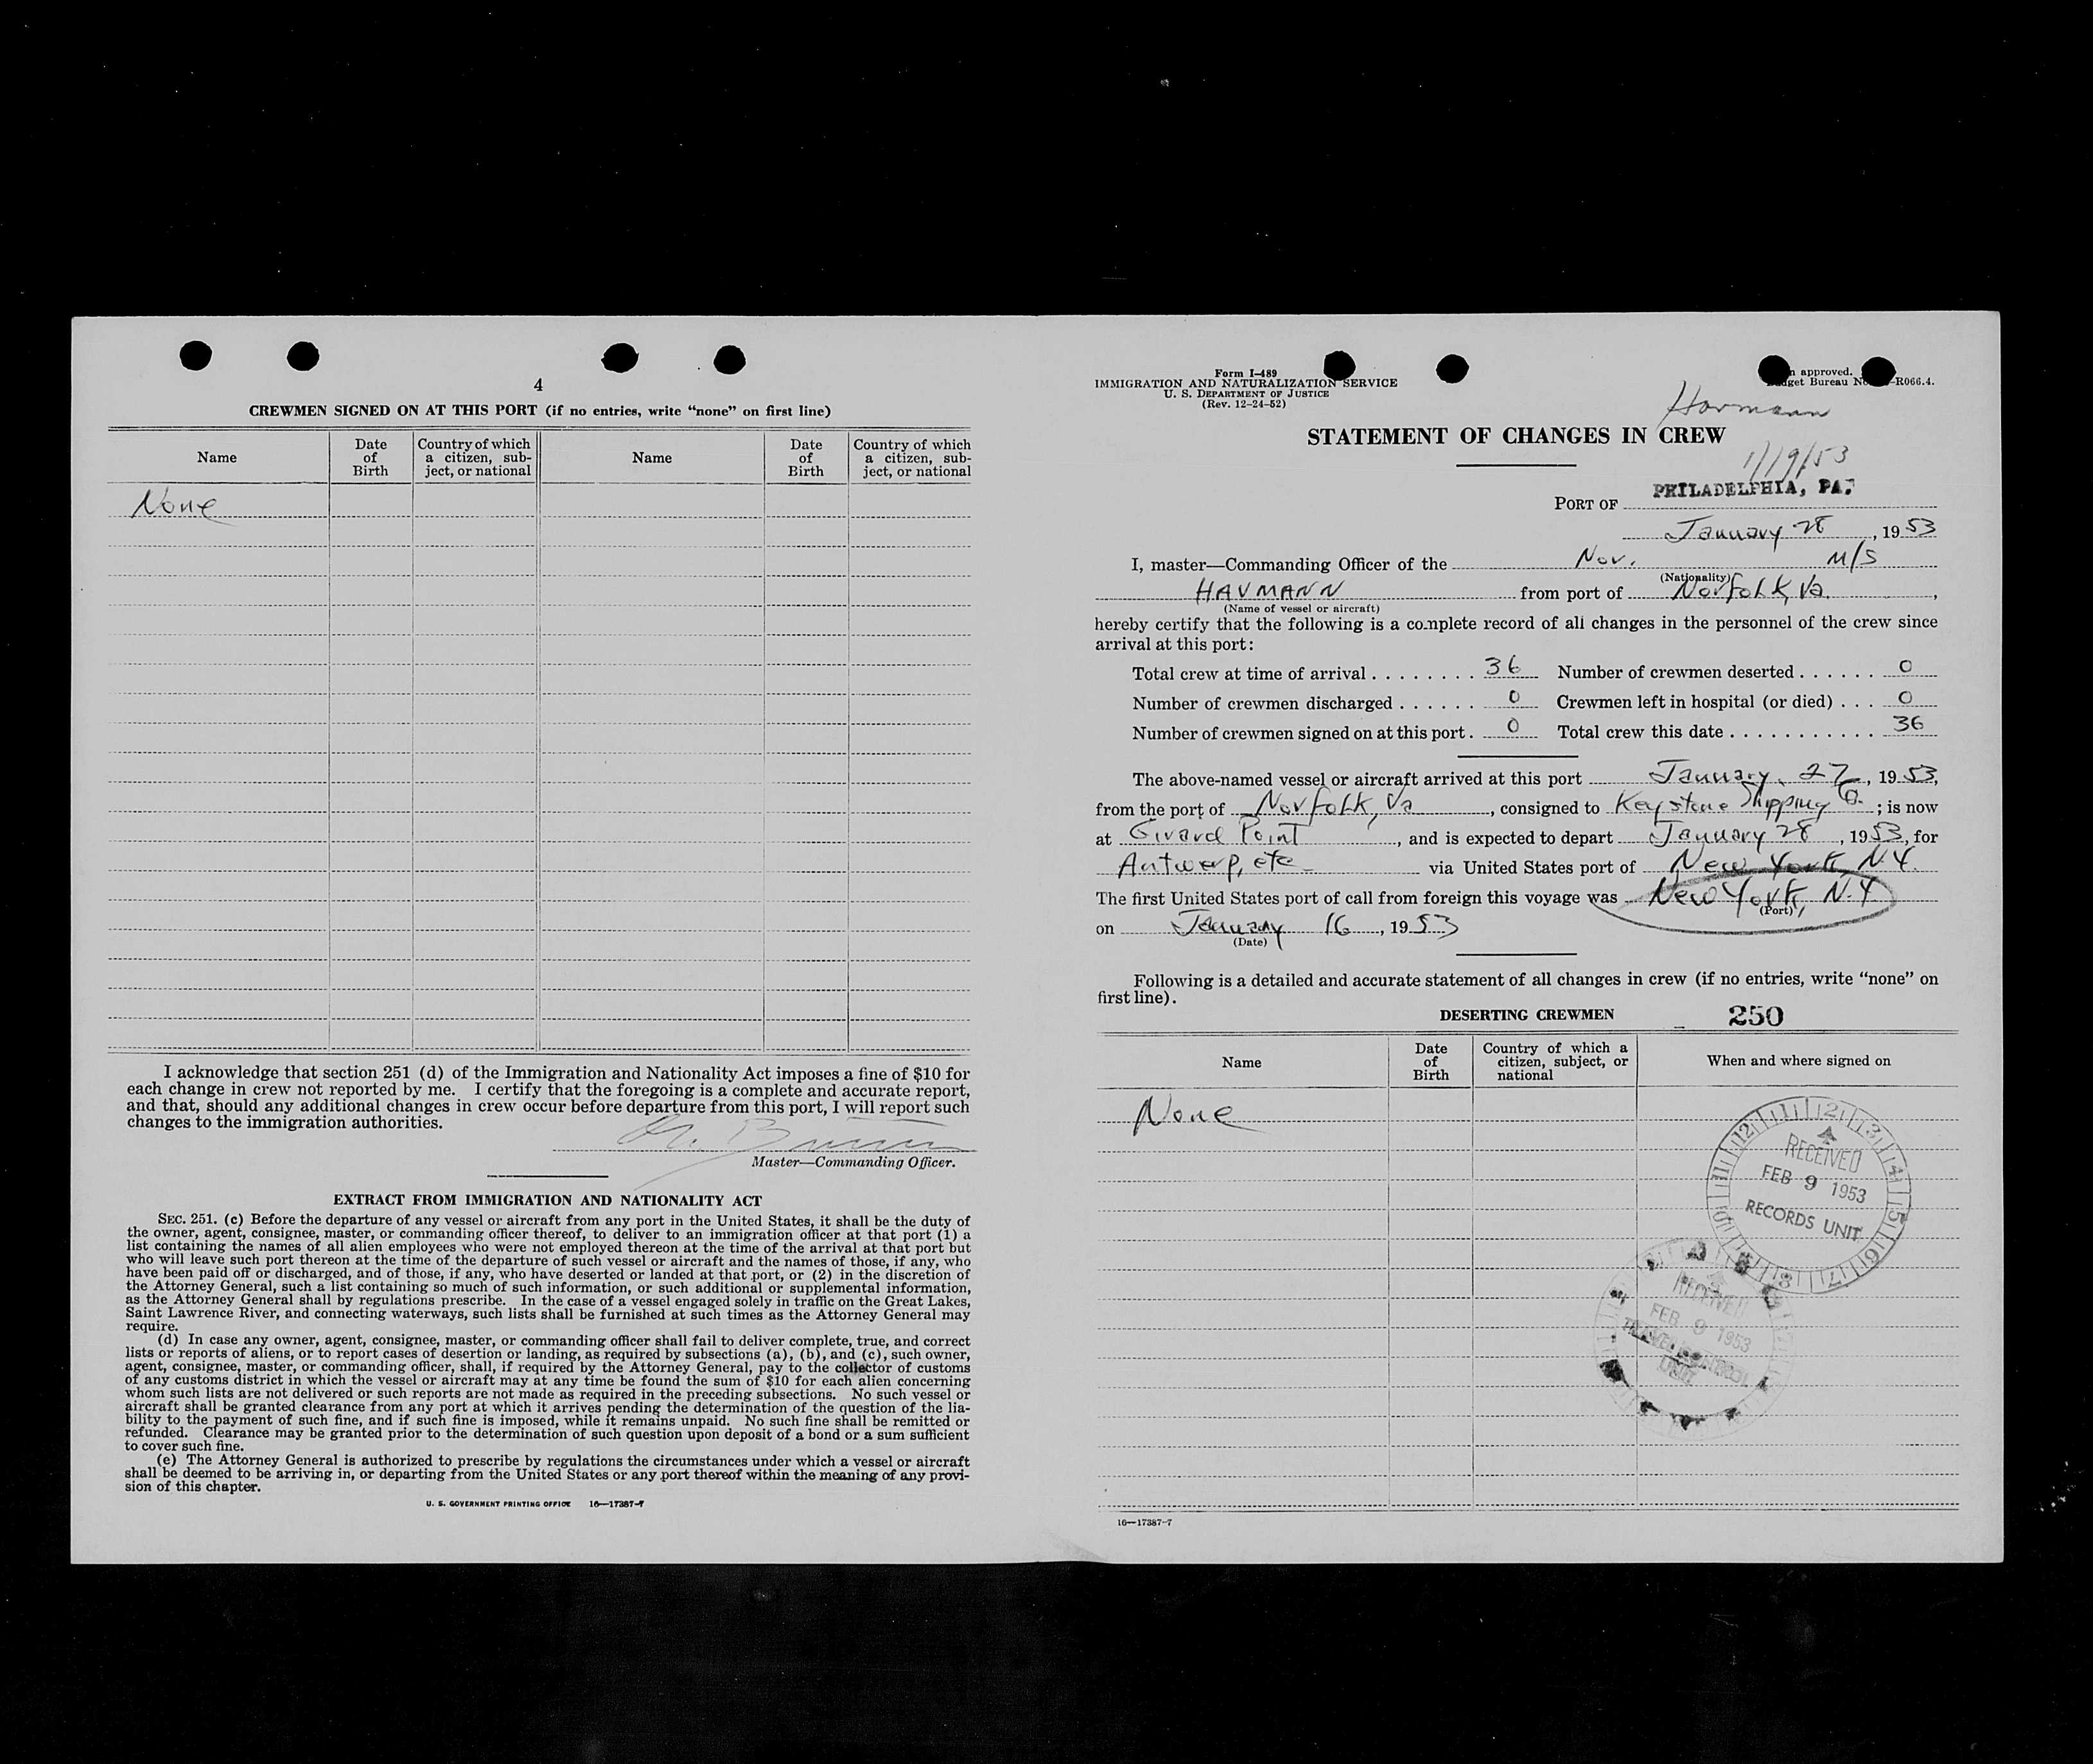 4
CREWMEN SIGNED ON AT THIS PORT (if no entries, write “none” on first line)
Name
Date of Birth
Country of which a citizen, sub-ject, or national
Name
Date of Birth
Country of which a citizen, sub-ject, or national
None
I acknowledge that section 251 (d) of the Immigration and Nationality Act imposes a fine of $10 for
each change in crew not reported by me. I certify that the foregoing is a complete and accurate report,
and that, should any additional changes in crew occur before departure from this port, I will report such
changes to the immigration authorities.
Master—Commanding Officer.
EXTRACT FROM IMMIGRATION AND NATIONALITY ACT
SEC. 251. (c) Before the departure of any vessel or aircraft from any port in the United States, it shall be the duty of
the owner, agent, consignee, master, or commanding officer thereof, to deliver to an immigration officer at that port (1) a
list containing the names of all alien employees who were not employed thereon at the time of the arrival at that port but
who will leave such port thereon at the time of the departure of such vessel or aircraft and the names of those, if any, who
have been paid off or discharged, and of those, if any, who have deserted or landed at that port, or (2) in the discretion of
the Attorney General, such a list containing so much of such information, or such additional or supplemental information,
as the Attorney General shall by regulations prescribe. In the case of a vessel engaged solely in traffic on the Great Lakes,
Saint Lawrence River, and connecting waterways, such lists shall be furnished at such times as the Attorney General may
require.
(d) In case any owner, agent, consignee, master, or commanding officer shall fail to deliver complete, true, and correct
lists or reports of aliens, or to report cases of desertion or landing, as required by subsections (a), (b), and (c), such owner,
agent, consignee, master, or commanding officer, shall, if required by the Attorney General, pay to the collector of customs
of any customs district in which the vessel or aircraft may at any time be found the sum of $10 for each alien concerning
whom such lists are not delivered or such reports are not made as required in the preceding subsections. No such vessel or
aircraft shall be granted clearance from any port at which it arrives pending the determination of the question of the lia-
bility to the payment of such fine, and if such fine is imposed, while it remains unpaid. No such fine shall be remitted or
refunded. Clearance may be granted prior to the determination of such question upon deposit of a bond or a sum sufficient
to cover such fine.
(e) The Attorney General is authorized to prescribe by regulations the circumstances under which a vessel or aircraft
shall be deemed to be arriving in, or departing from the United States or any port thereof within the meaning of any provi-
sion of this chapter.
U. S. GOVERNMENT PRINTING OFFICE 16—17387-7
Form I-489
IMMIGRATION AND NATURALIZATION SERVICE
U. S. DEPARTMENT OF JUSTICE
(Rev. 12-24-52)
approved.
get Bureau No. -R066.4.
Havmann
STATEMENT OF CHANGES IN CREW
1/19/53
PORT OF PHILADELPHIA, PA.
January 28, 1953
I, master—Commanding Officer of the Nor. M/S
(Nationality)
HAVMANN from port of Norfolk, Va.,
(Name of vessel or aircraft)
hereby certify that the following is a complete record of all changes in the personnel of the crew since
arrival at this port:
Total crew at time of arrival ........ 36 Number of crewmen deserted ...... 0
Number of crewmen discharged ...... 0 Crewmen left in hospital (or died) ... 0
Number of crewmen signed on at this port . 0 Total crew this date ........... 36
The above-named vessel or aircraft arrived at this port January 27, 1953,
from the port of Norfolk, Va, consigned to Keystone Shipping Co.; is now
at Girard Point, and is expected to depart January 28, 1953, for
Antwerp, etc via United States port of New York, N.Y.
The first United States port of call from foreign this voyage was New York, N.Y
(Port)
on January 16, 1953
(Date)
Following is a detailed and accurate statement of all changes in crew (if no entries, write “none” on
first line).
DESERTING CREWMEN
250
Name
Date of Birth
Country of which a citizen, subject, or national
When and where signed on
None
RECEIVED
FEB 9 1953
RECORDS UNIT
RECEIVED
FEB 9 1953
UNIT
16—17387-7